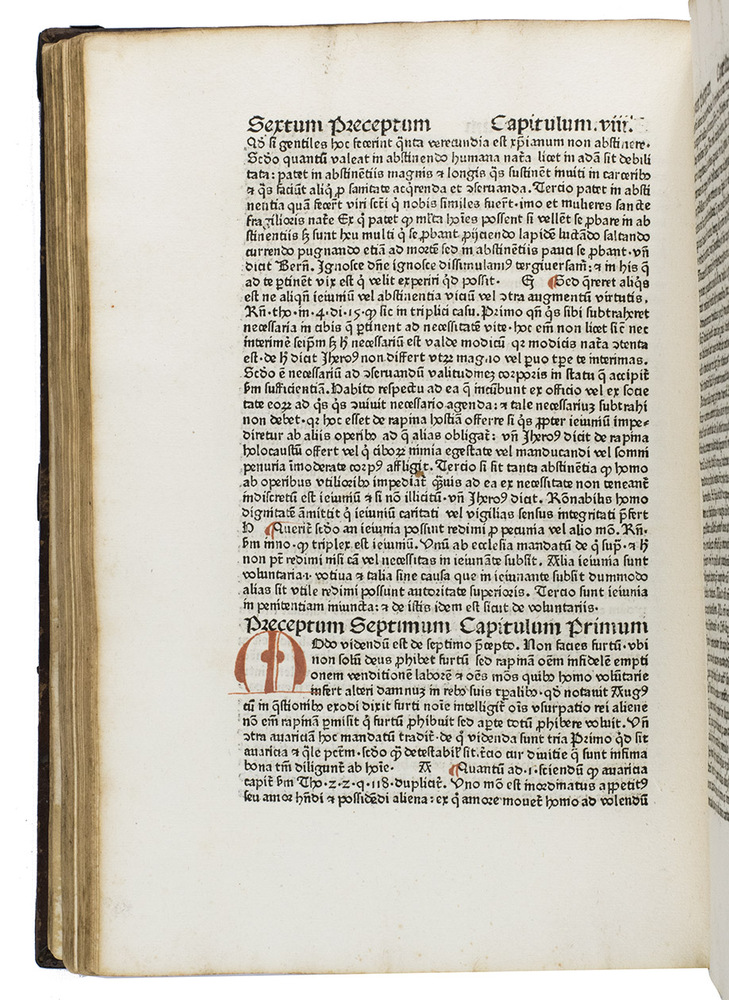 Sextum Preceptum Capitulum.viii.
Qd si gentiles hoc fecerint q̈nta verecundia est xp̄ianum non abstinere.
Scd̄o quantū valeat in abstinendo humana nat̄a licet in adā sit debili
tata: patet in abstinētiis magnis ⁊ longis q̄s sustinēt inuiti in carcerib̄o
⁊ q̄s faciūt aliq̄ ꝑ sanitate acq̄renda et ꝯseruanda. Tercio patet in absti
nentia quā fecer̄t viri sct̄i q̄ nobis similes fuer̄t·imo et mulieres sancte
fragilioris nat̄e Ex q̄ patet qͥ ml̄ta hoīes possent si vellēt se ꝓbare in ab
stinentiis sꝫ sunt heu multi q̄ se ꝓbant ꝓijciendo lapidē luctādo saltando
currendo pugnando etiā ad mortē sed in abstinētiis pauci se ꝓbant·vn̄
dicit Bern̄. Ignosce dn̄e ignosce dissimulam⁹ tergiuersam̄: ⁊ in his q̄
ad te ꝑtinent vix est q̄ velit experiri qd possit· G Sed q̄reret aliq̄s
est ne aliqn̄ ieiuniū vel abstinentia viciū vel ꝯtra augmentū virtutis.
Rn̄·tho·in·4·di·15·qͥ sic in triplici casu. Primo qn̄ q̄s sibi subtraheret
necessaria in cibis q̄ ꝑtinent ad necessitatē vite· hoc em̄ non licet siē nec
interimē seip̄m sꝫ h̄ necessariū est valde modicū qr modicis nat̄a ꝯtenta
est·de h̄ dicit Jhero⁹ non differt vtꝝ mag·io vel ꝑuo tp̄e te interimas.
Scd̄o ē necessariū ad ꝯseruandū valitudinez corporis in statu q̄ accipit̄
ẜm sufficientiā. Habito respectu ad ea q̄ incūbunt ex officio vel ex socie
tate eoꝝ ad q̄s q̄s ꝯuiuit necessario agenda: ⁊ tale necessariuꝫ subtrahi
non debet· qr hoc esset de rapina hostiā offerre si q̄s ꝓpter ieiuniū impe⸗
diretur ab aliis operib̄o ad q̄ alias obligat̄: vn̄ Jhero⁹ dicit de rapina
holocaustū offert vel q̄ ciboꝝ nimia egestate vel manducandi vel somni
penuria īmoderate corp⁹ affligit. Tercio si sit tanta abstinētia qͥ homo
ab operibus vtiliorib̄o impediat̄ q̄uis ad ea ex necessitate non teneant̄
indiscretū est ieiuniū ⁊ si nō illicitū·vn̄ Jhero⁹ dicit. Rōnabilus homo
dignitatē āmittit q̄ ieiuniū caritati vel vigilias sensus integritati p̄fert
H Querit̄ scd̄o an ieiunia possunt redimi ꝓ pecunia vel alio mō. Rn̄·
ẜm inno·qͥ triplex est ieiuniū. Vnū ab ecclesia mandatū de q̄ sup̄·⁊ h̄
non pt̄ redimi nisi cā vel necessitas in ieiunāte subsit. Alia ieiunia sunt
voluntaria·i·votiua ⁊ talia sine causa que in ieiunante subsit dummodo
alias sit vtile redimi possunt autoritate superioris. Tercio sunt ieiunia
in penitentiam iniuncta: ⁊ de istis idem est sicut de voluntariis·
Preceptum Septimum Capitulum Primum
MOdo videndū est de septimo p̄cepto. Non facies furtū·vbi
non solū deus ꝓhibet furtū sed rapinā oēm infidelē empti
onem venditionē laborē ⁊ oēs mōs quibo homo voluntarie
infert alteri damnuꝫ in reb̄o suis tp̄alib̄o·qd̄ notauit Aug⁹
tū in q̄stionib̄o exodi dixit furti noīe intelligit̄ oīs vsurpatio rei aliene
nō em̄ rapinā ꝑmisit q̄ furtū ꝓhibuit sed aꝑte totū ꝓhibere voluit. Vn̄
ꝯtra auariciā hoc mandatū tradit̄· de q̄ videnda sunt tria Primo qd̄ sit
auaricia ⁊ q̄le pctm̄·scd̄o qͥ detestabiľ sit·t̄cio cur diuitie q̄ sunt infima
bona tm̄ diligunt̄ ab hoīe· A Quantū ad·1·sciendū qͥ auaricia
capit̄ ẜm Tho·2·2·q·118·duplicit̄. Vno mō est inordinatus appetit⁹
seu amor hn̄di ⁊ possidēdi aliena: ex q̄ amore mouet̄ homo ad volendū